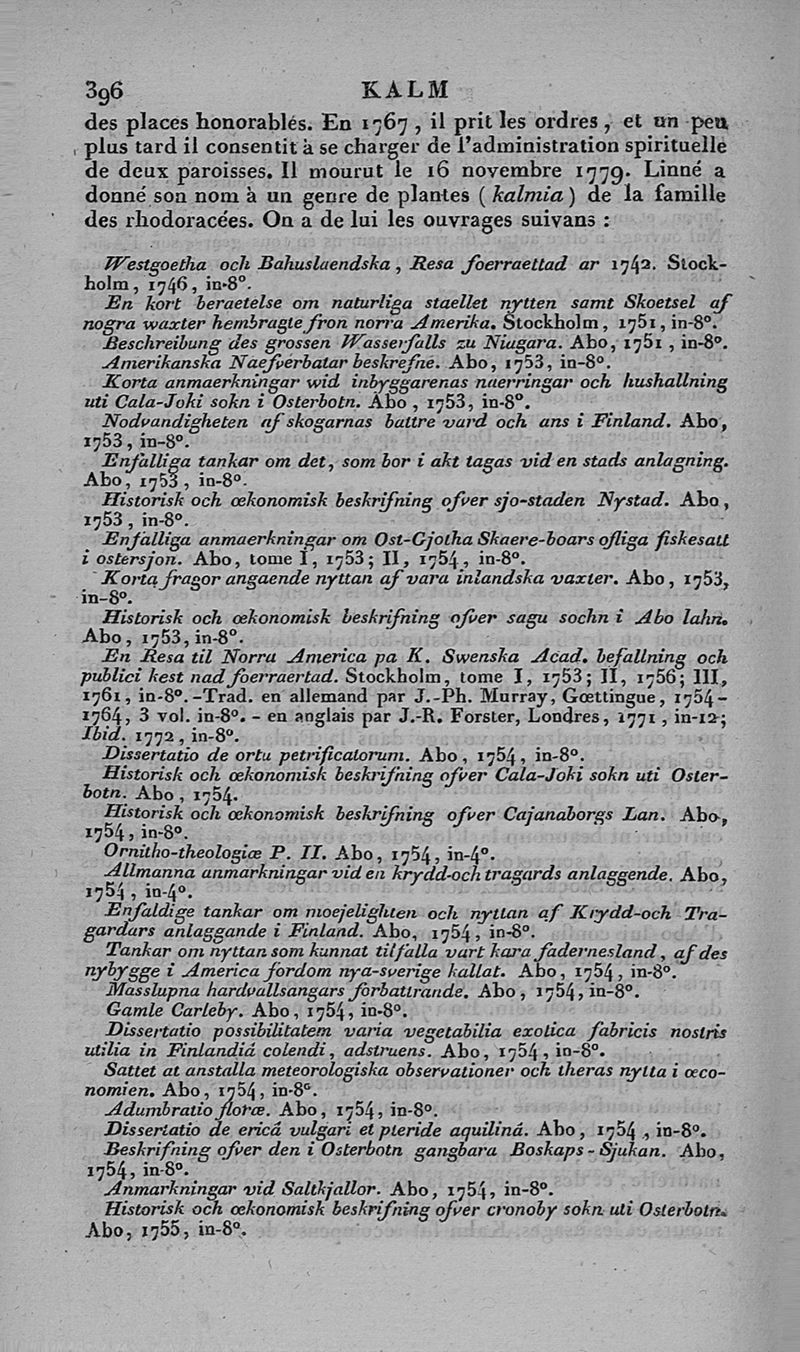 396 KALM
des places honorablés. En 1767, il prit les ordres, et un peu
plus tard il consentit à se charger de l'administration spirituelle
de deux paroisses. Il mourut le 16 novembre 1779. Linné a
donné son nom à un genre de plantes (kalmia) de la famille
des rhodoracées. On a de lui les ouvrages suivans :
Westgoetha och Bahuslaendska, Resa foerraettad ar 1742. Stock-
holm, 1746, in-8°.
En kort beraetelse om naturliga staellet nytten samt Skoetsel af
nogra waxter hembragte fron norra Amerika. Stockholm, 1751, in-8°.
Beschreibung des grossen Wasserfalls zu Niagara. Abo, 1751, in-8°.
Amerikanska Naefverbatar beskrefne. Abo, 1753, in-8°.
Korta anmaerkningar wid inbyggarenas naerringar och hushallning
uti Cala-Joki sokn i Osterbotn. Abo, 1753, in-8°.
Nodvandigheten af skogarnas battre vard och ans i Finland. Abo,
1753, in-8°.
Enfalliga tankar om det, som bor i akt tagas vid en stads anlagning.
Abo, 1753, in-8°.
Historisk och œkonomisk beskrifning ofver sjo-staden Nystad. Abo,
1753, in-8°.
Enfalliga anmaerkningar om Ost-Gjotha Skaere-boars ofliga fiskesatt
i ostersjon. Abo, tome I, 1753; II, 1754, in-8°.
Korta fragor angaende nyttan af vara inlandska vaxter. Abo, 1753,
in-8°.
Historisk och œkonomisk beskrifning ofver sagu sochn i Abo lahn.
Abo, 1753, in-8°.
En Resa til Norra America pa K. Swenska Acad. befallning och
publici kest nad foerraertad. Stockholm, tome I, 1753; II, 1756; III,
1761, in-8°.-Trad. en allemand par J.-Ph. Murray, Gœttingue, 1754-
1764, 3 vol. in-8°. - en anglais par J.-R. Forster, Londres, 1771, in-12;
Ibid. 1772, in-8°.
Dissertatio de ortu petrificatorum. Abo, 1754, in-8°.
Historisk och œkonomisk beskrifning ofver Cala-Joki sokn uti Oster-
botn. Abo, 1754.
Historisk och œkonomisk beskrifning ofver Cajanaborgs Lan. Abo,
1754, in-8°.
Ornitho-theologiæ P. II. Abo, 1754, in-4°.
Allmanna anmarkningar vid en krydd-och tragards anlaggende. Abo,
1754, in-4°.
Enfaldige tankar om moejelighten och nyttan af Krydd-och Tra-
gardars anlaggande i Finland. Abo, 1754, in-8°.
Tankar om nyttan som kunnat tilfalla vart kara fadernesland, af des
nybygge i America fordom nya-sverige kallat. Abo, 1754, in-8°.
Masslupna hardvallsangars forbattrande. Abo, 1754, in-8°.
Gamle Carleby. Abo, 1754, in-8°.
Dissertatio possibilitatem varia vegetabilia exotica fabricis nostris
utilia in Finlandiâ colendi, adstruens. Abo, 1754, in-8°.
Sattet at anstalla meteorologiska observationer och theras nytta i œco-
nomien. Abo, 1754, in-8°.
Adumbratio floræ. Abo, 1754, in-8°.
Dissertatio de ericâ vulgari et pteride aquilinâ. Abo, 1754, in-8°.
Beskrifning ofver den i Osterbotn gangbara Boskaps-Sjukan. Abo,
1754, in-8°.
Anmarkningar vid Saltkjallor. Abo, 1754, in-8°.
Historisk och œkonomisk beskrifning ofver cronoby sokn uti Osterbotn.
Abo, 1755, in-8°.